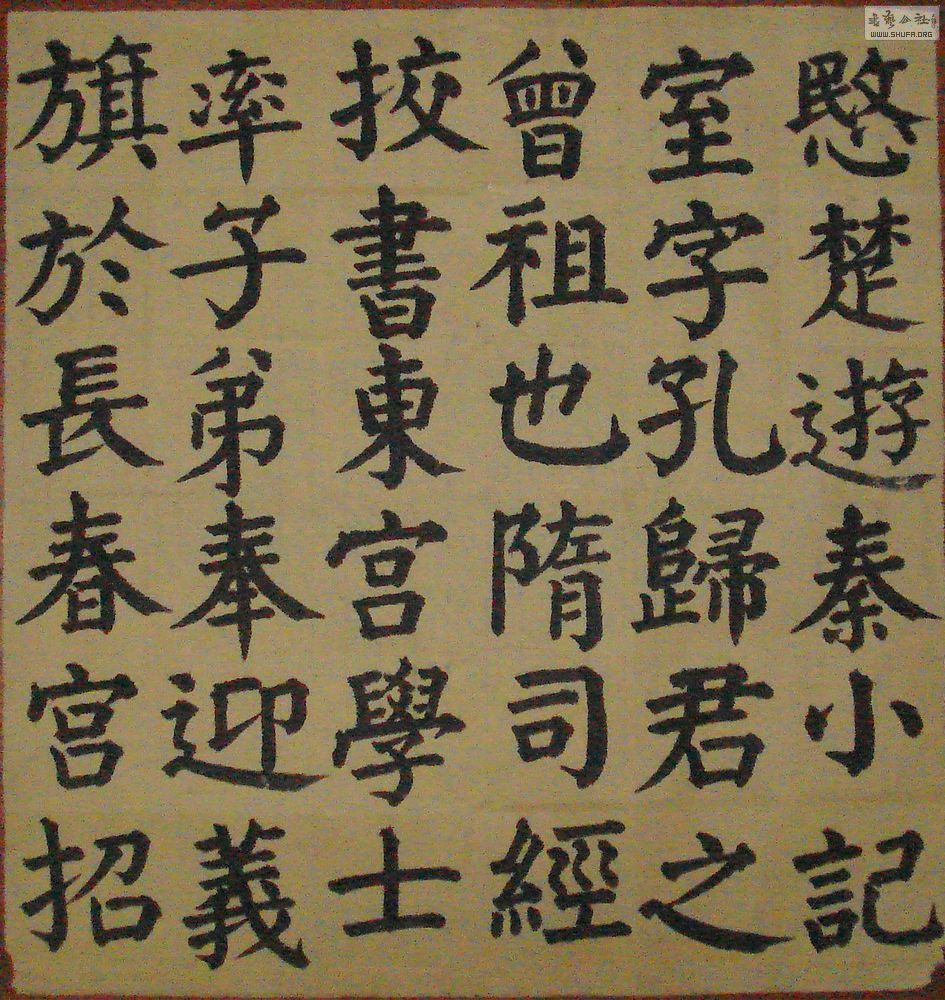 愍楚遊秦小記
室字孔歸君之
曾祖也隋司經
挍書東宮學士
率子弟奉迎義
旗於長春宮招
WWW.SHUFA.ORG